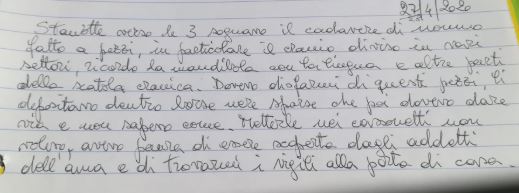 27/4/2020
Stanotte verso le 3 sognavo il cadavere di nonno
fatto a pezzi, in particolare il cranio diviso in vari
settori, ricordo la mandibola con la lingua e altre parti
della scatola cranica. Dovevo disfarmi di questi pezzi, li
depositavo dentro borse nere sparse che poi dovevo dare
via e non sapevo come. Metterle nei cassonetti non
volevo, avevo paura di essere scoperta dagli addetti
dell'ama e di trovarmi i vigili alla porta di casa.